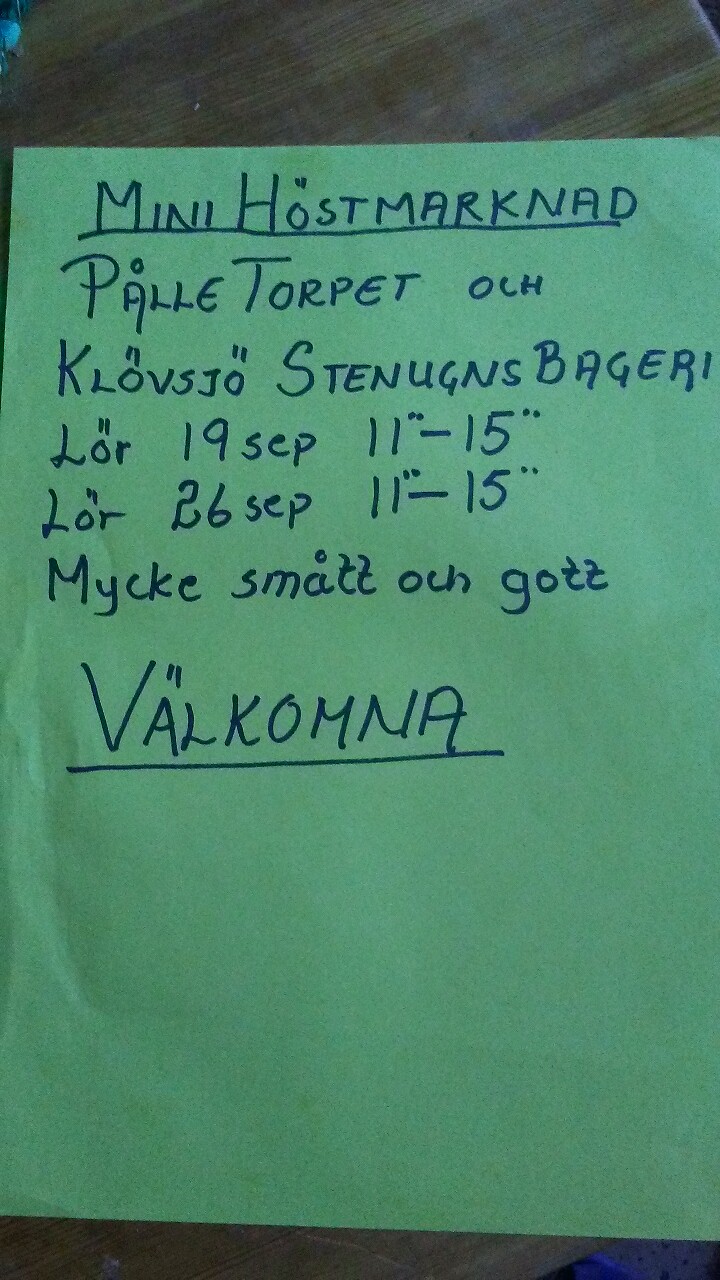 MINI HÖSTMARKNAD
PÅLLE TORPET OCH
KLÖVSJÖ STENUGNS BAGERI
Lör 19 sep 11¨–15¨
Lör 26 sep 11¨–15¨
Mycke smått och gott
VÄLKOMNA